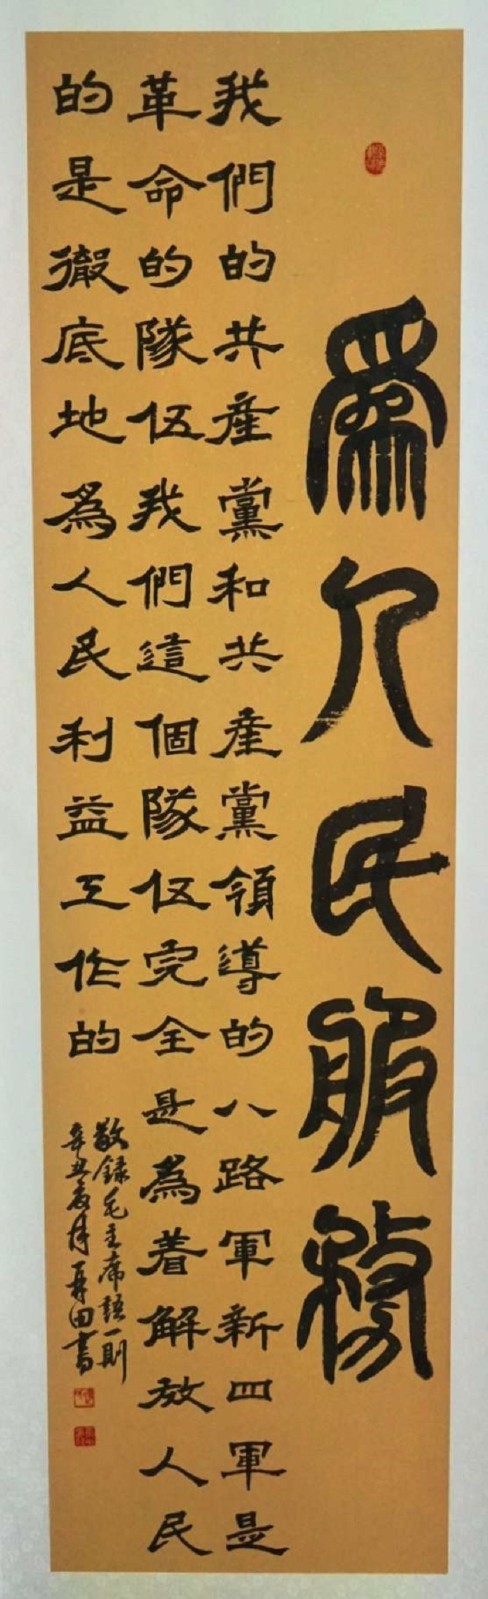 爲人民服務
我們的共産黨和共産黨領導的八路軍新四軍是
革命的隊伍我們這個隊伍完全是為着解放人民
的是徹底地為人民利益工作的
敬録毛主席語一則
辛丑夏月再田書